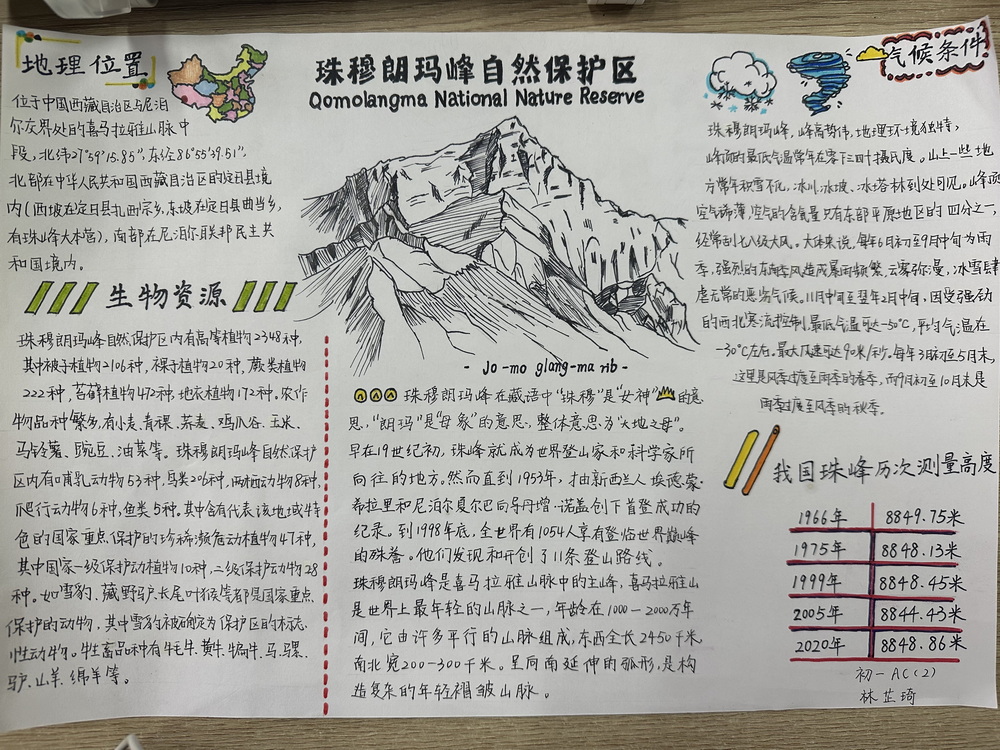 珠穆朗玛峰自然保护区
Qomolangma National Nature Reserve
地理位置
位于中国西藏自治区与尼泊
尔交界处的喜马拉雅山脉中
段,北纬27°59′15.85″,东经86°55′39.51″.
北部在中华人民共和国西藏自治区的定日县境
内(西坡在定日县扎西宗乡,东坡在定日县曲当乡,
有珠峰大本营),南部在尼泊尔联邦民主共
和国境内。
生物资源
珠穆朗玛峰自然保护区内有高等植物2348种,
其中被子植物2106种,裸子植物20种,蕨类植物
222种,苔藓植物472种,地衣植物172种。农作
物品种繁多,有小麦、青稞、荞麦、鸡爪谷、玉米、
马铃薯、豌豆、油菜等。珠穆朗玛峰自然保护
区内有哺乳动物53种,鸟类206种,两栖动物8种,
爬行动物6种,鱼类5种。其中含有代表该地域特
色的国家重点保护的珍稀濒危动植物47种,
其中国家一级保护动植物10种,二级保护动物28
种。如雪豹、藏野驴、长尾叶猴等都是国家重点
保护的动物,其中雪豹被确定为保护区的标志
性动物。牲畜品种有牦牛、黄牛、犏牛、马、骡、
驴、山羊、绵羊等。
- Jo-mo glang-ma rib -
珠穆朗玛峰在藏语中“珠穆”是“女神”的意
思,“朗玛”是“母象”的意思,整体意思为“大地之母”。
早在19世纪初,珠峰就成为世界登山家和科学家所
向往的地方。然而直到1953年,才由新西兰人埃德蒙·
希拉里和尼泊尔夏尔巴向导丹增·诺盖创下首登成功的
纪录。到1998年底,全世界有1054人享有登临世界巅峰
的殊誉。他们发现和开创了11条登山路线。
珠穆朗玛峰是喜马拉雅山脉中的主峰,喜马拉雅山
是世界上最年轻的山脉之一,年龄在1000—2000万年
间,它由许多平行的山脉组成,东西全长2450千米,
南北宽200-300千米。呈向南延伸的弧形,是构
造复杂的年轻褶皱山脉。
气候条件
珠穆朗玛峰,峰高势伟,地理环境独特,
峰顶的最低气温常年在零下三四十摄氏度。山上一些地
方常年积雪不化,冰川、冰坡、冰塔林到处可见。峰顶
空气稀薄,空气的含氧量只有东部平原地区的四分之一,
经常刮七八级大风。大体来说,每年6月初至9月中旬为雨
季,强烈的东南季风造成暴雨频繁,云雾弥漫,冰雪肆
虐无常的恶劣气候。11月中旬至翌年2月中旬,因受强劲
的西北寒流控制,最低气温可达-50℃,平均气温在
-30℃左右。最大风速可达90米/秒。每年3月初至5月末,
这里是风季过度至雨季的春季,而9月初至10月末是
雨季过度至风季的秋季。
我国珠峰历次测量高度
1966年 8849.75米
1975年 8848.13米
1999年 8848.45米
2005年 8844.43米
2020年 8848.86米
初一AC(2)
林芷琦